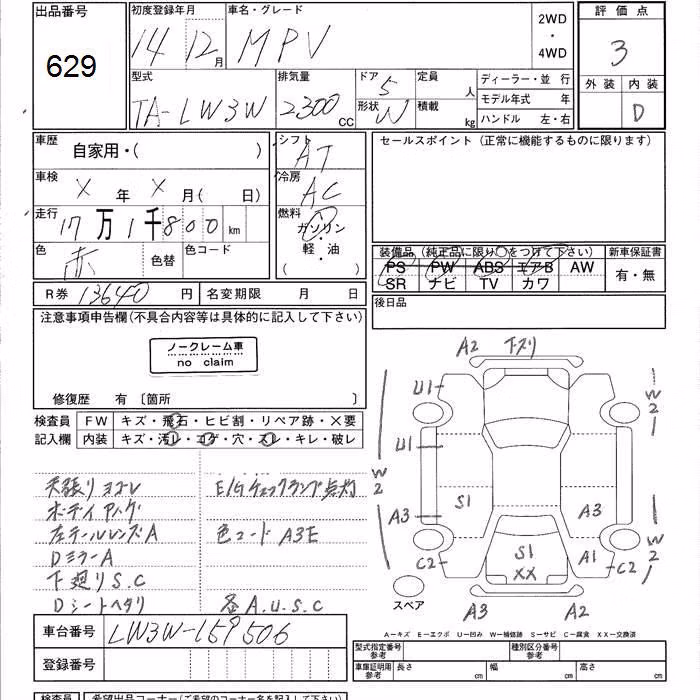 出品番号
629
初度登録年月
14 12月
車名・グレード
MPV
2WD
・
4WD
評価点
3
外装 内装
D
型式
TA-LW3W
排気量
2300 CC
ドア 5
形状 W
定員 人
積載 kg
ディーラー・並行
モデル年式 年
ハンドル 左・右
車歴
自家用・( )
シフト
AT
セールスポイント (正常に機能するものに限ります)
車検
X 年 X 月( 日)
冷房
AC
走行
17万1千800km
燃料
ガソリン
・
軽・油
( )
色
赤
色替
色コード
装備品 (純正品に限り○をつけて下さい)
PS PW ABS エアB AW
SR ナビ TV カワ
新車保証書
有・無
R券 13640 円
名変期限 月 日
後日品
注意事項申告欄(不具合内容等は具体的に記入して下さい)
ノークレーム車
no claim
修復歴 有 〔箇所 〕
検査員 FW キズ・飛石・ヒビ割・リペア跡・X要
記入欄 内装 キズ・汚レ・コゲ・穴・スレ・キレ・破レ
天張りヨゴレ
E/Gチェックランプ点灯
左テールレンズA
色コード A3E
DミラーA
下廻りS.C
Dシートヘタリ
各A.U.S.C
A2 下スリ
U1
W2
U1
W2
S1
A3
A3
W2
S1
XX
A1
C2
C2
スペア
A3
A2
A−キズ E−エクボ U−凹み W−補修跡 S−サビ C−腐食 XX−交換済
車台番号
LW3W-159506
登録番号
型式指定番号
参考
種別区分番号
参考
車庫証明用
参考
長さ cm
幅 cm
高さ cm
検査員
希望出品コーナー(ご希望のコーナー名を記入下さい)